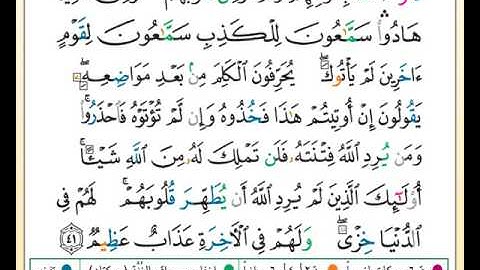 هَادُوا۟ ۛ سَمَّـٰعُونَ لِلْكَذِبِ سَمَّـٰعُونَ لِقَوْمٍ
ءَاخَرِينَ لَمْ يَأْتُوكَ ۖ يُحَرِّفُونَ الْكَلِمَ مِنۢ بَعْدِ مَوَاضِعِهِۦ ۖ
يَقُولُونَ إِنْ أُوتِيتُمْ هَـٰذَا فَخُذُوهُ وَإِن لَّمْ تُؤْتَوْهُ فَاحْذَرُوا۟ ۚ
وَمَن يُرِدِ اللَّهُ فِتْنَتَهُۥ فَلَن تَمْلِكَ لَهُۥ مِنَ اللَّهِ شَيْـًٔا ۚ
أُو۟لَـٰٓئِكَ الَّذِينَ لَمْ يُرِدِ اللَّهُ أَن يُطَهِّرَ قُلُوبَهُمْ ۚ لَهُمْ فِى
الدُّنْيَا خِزْىٌ ۖ وَلَهُمْ فِى الْـَٔاخِرَةِ عَذَابٌ عَظِيمٌ ٤١